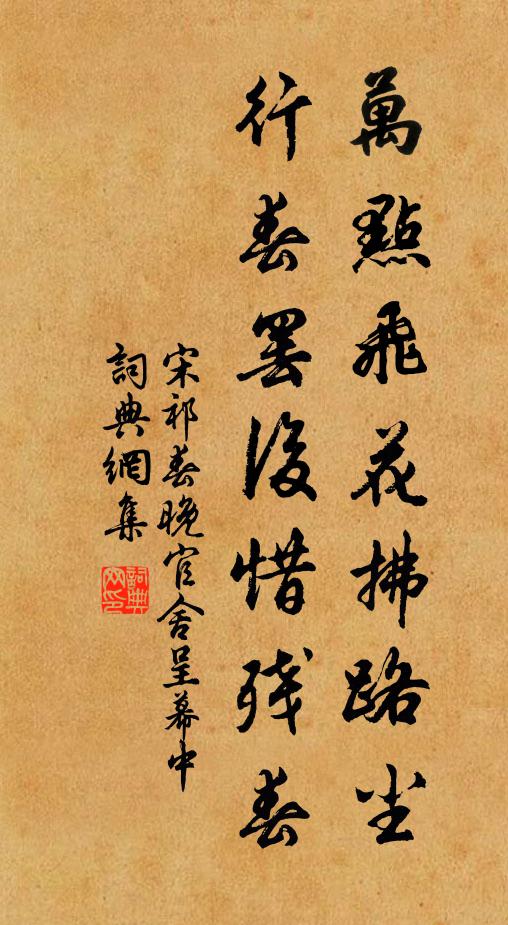 萬點飛花拂路尘
行春罢後惜残春
宋祁春晚官舍呈幕中
詞典網集
詞典网印